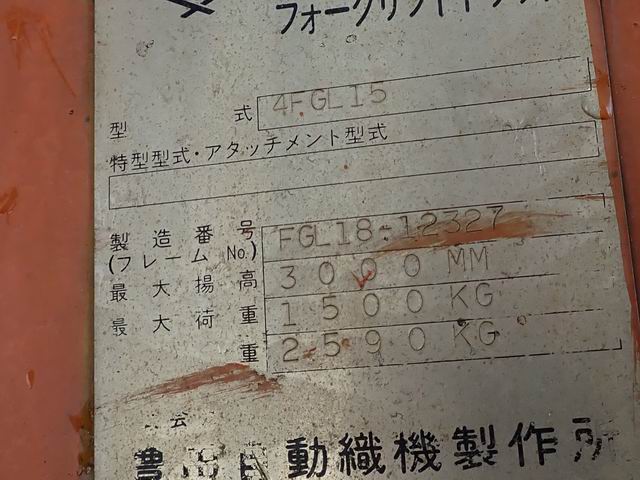 フォークリフトトラック
型 式 4FGL15
特型型式・アタッチメント型式
製造番号 FGL18-12327
(フレームNo.)
最大揚高 3000 MM
最大荷重 1500 KG
重 2590 KG
会
豊田自動織機製作所